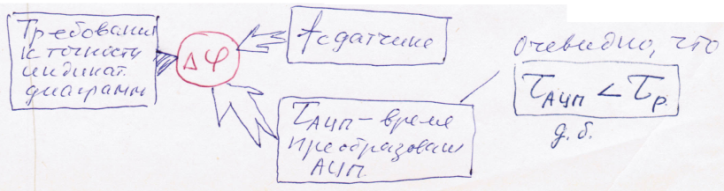 Требования
к точности
индикат.
диаграмм
Δφ
f с датчика
τАЦП – время
преобразован
АЦП.
очевидно, что
τАЦП < τр.
д.б.